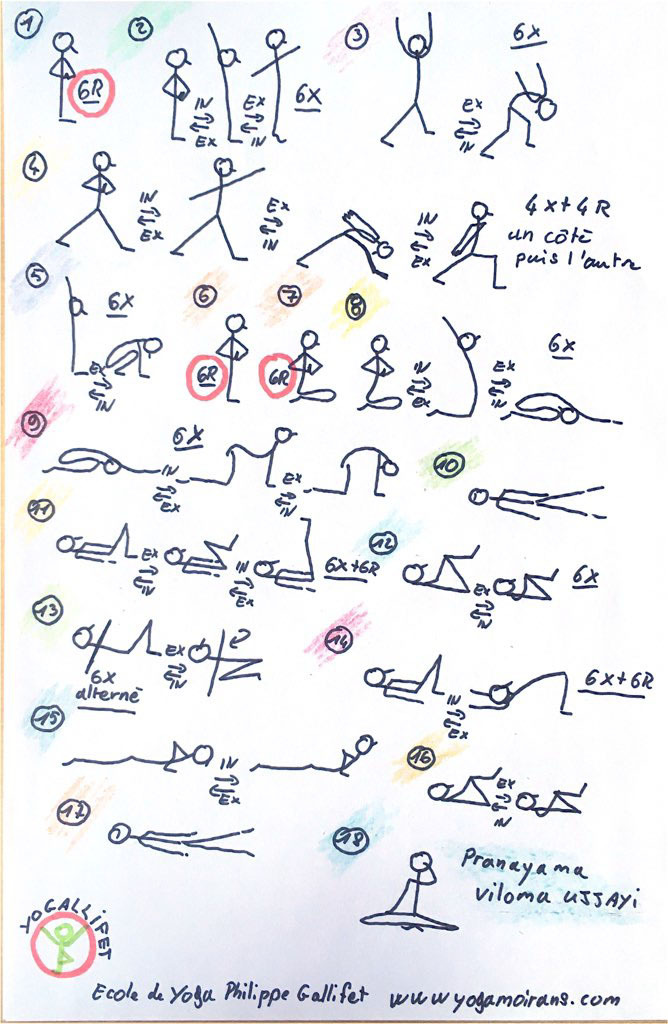 1
6R
2
IN
EX
EX
IN
6X
3
6X
EX
IN
4
IN
EX
EX
IN
IN
EX
4X+4R
un côté
puis l'autre
5
6X
EX
IN
6
6R
7
6R
8
IN
EX
EX
IN
6X
9
6X
IN
EX
EX
IN
10
11
EX
IN
IN
EX
6X+6R
12
EX
IN
6X
13
6X
alterné
EX
IN
14
IN
EX
6X+6R
15
IN
EX
16
EX
IN
17
18
Pranayama
viloma UJJAYI
YOGALLIFET
Ecole de Yoga Philippe Gallifet www.yogamoirans.com